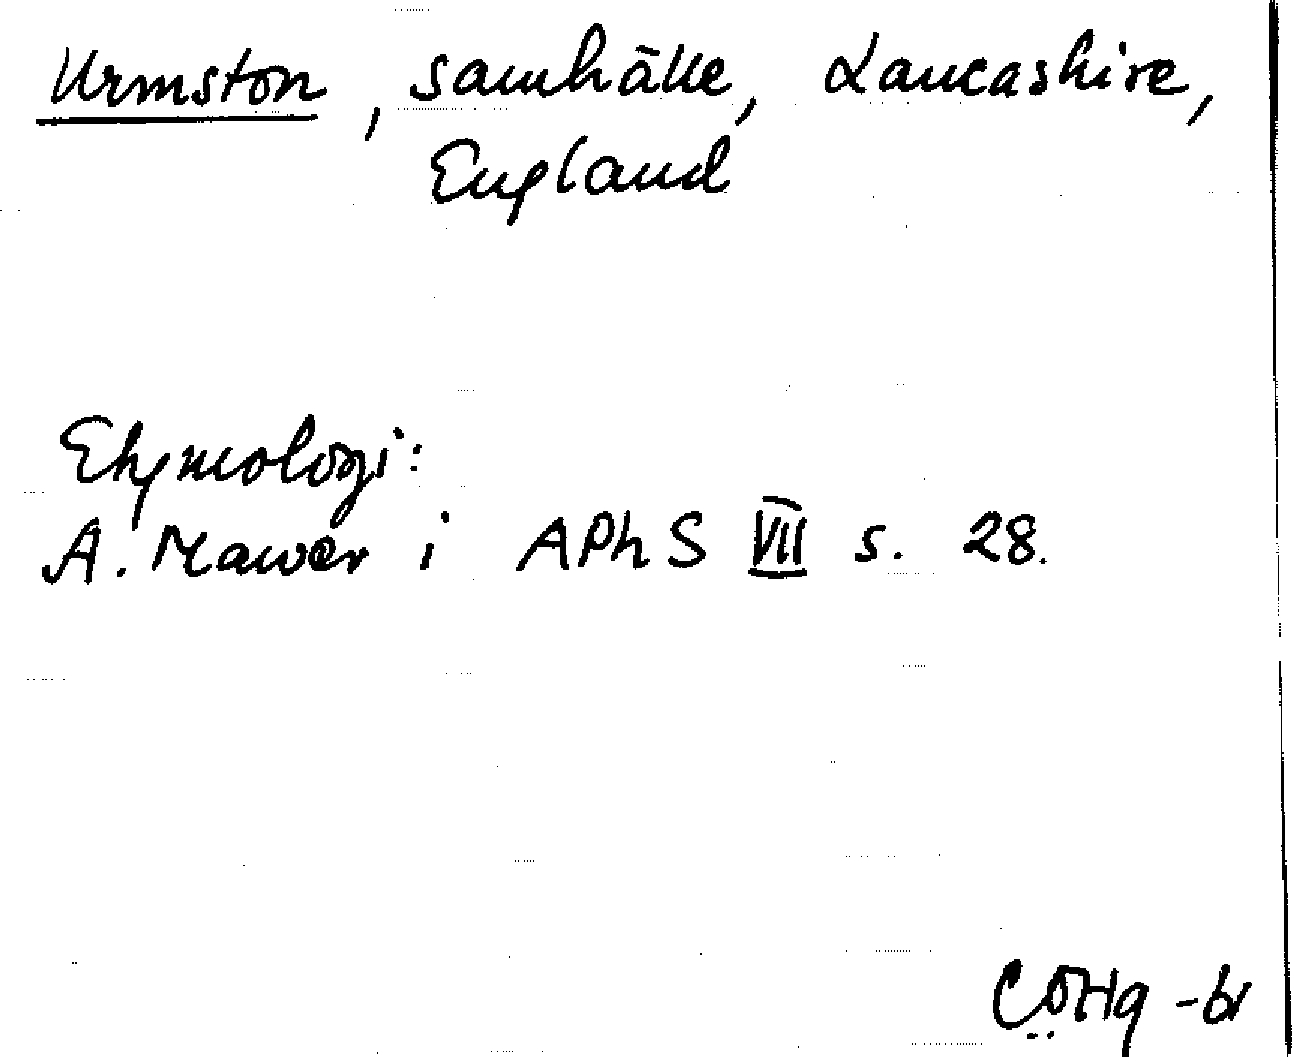 Urmston, samhälle, Lancashire,
England
Etymologi:
A. Mawer i APhS VII s. 28.